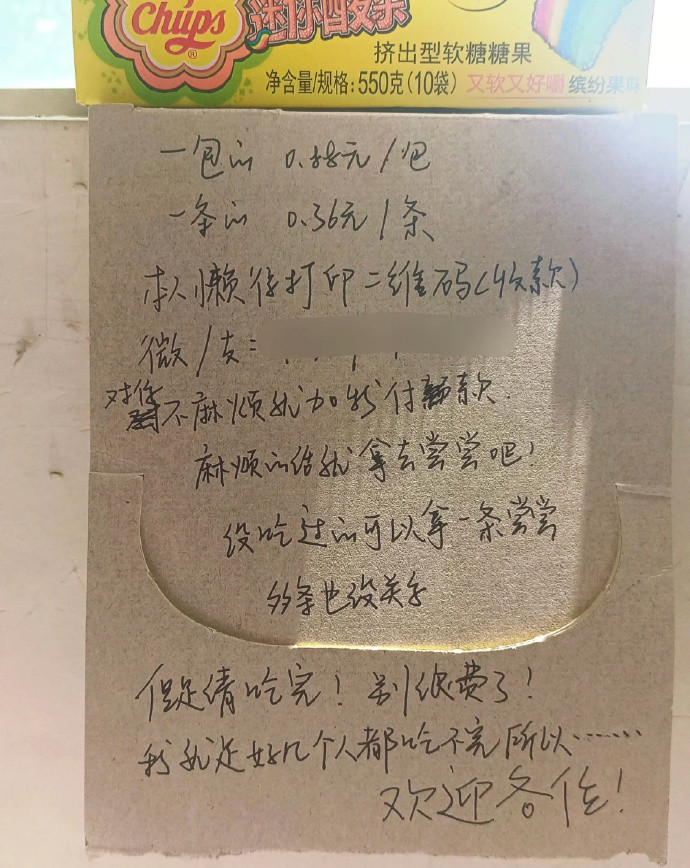 Chups
迷你酸条
挤出型软糖糖果
净含量/规格: 550克(10袋) 又软又好嚼 缤纷果味
一包的 0.88元/包
一条的 0.36元/条
本人懒得打印二维码(收款)
微/支:
对你不麻烦就加我付款.
麻烦的话就拿去尝尝吧!
没吃过的可以拿一条尝尝
多条也没关系
但是请吃完! 别浪费了!
我就是好几个人都吃不完所以……
欢迎各位!